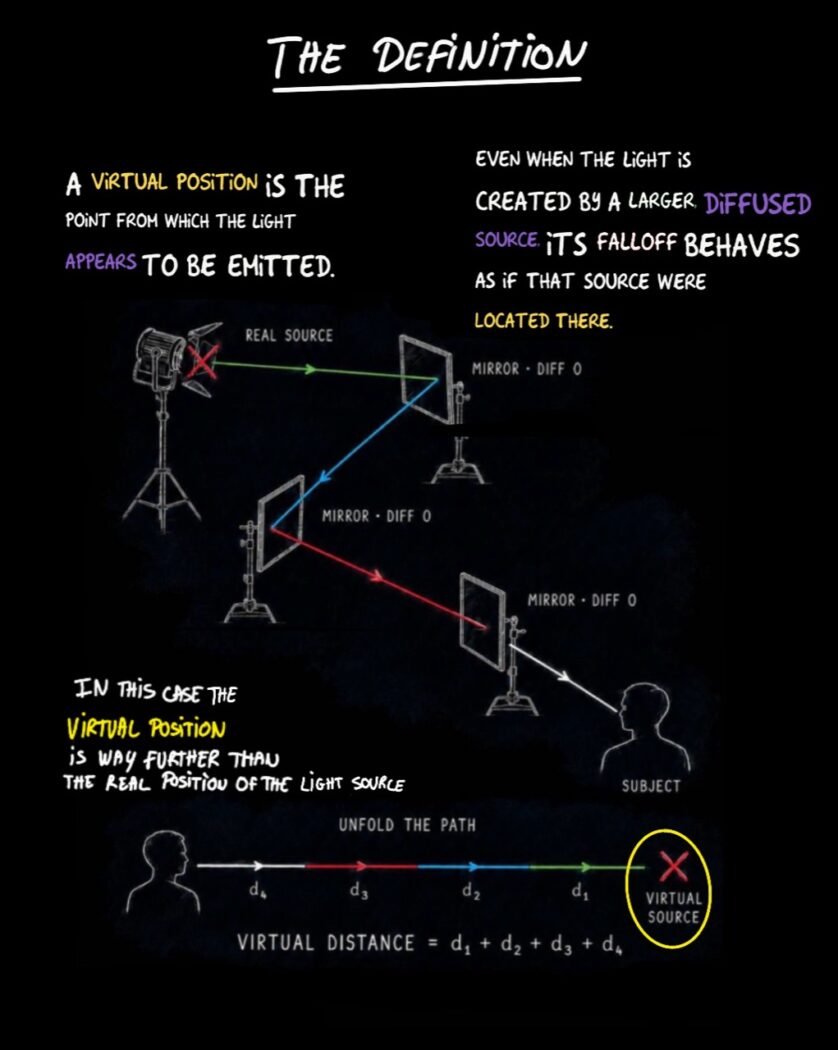 THE DEFINITION
A VIRTUAL POSITION IS THE
POINT FROM WHICH THE LIGHT
APPEARS TO BE EMITTED.
EVEN WHEN THE LIGHT IS
CREATED BY A LARGER, DIFFUSED
SOURCE, ITS FALLOFF BEHAVES
AS IF THAT SOURCE WERE
LOCATED THERE.
REAL SOURCE
MIRROR · DIFF 0
MIRROR · DIFF 0
MIRROR · DIFF 0
SUBJECT
IN THIS CASE THE
VIRTUAL POSITION
IS WAY FURTHER THAN
THE REAL POSITION OF THE LIGHT SOURCE
UNFOLD THE PATH
d₄ d₃ d₂ d₁
VIRTUAL
SOURCE
VIRTUAL DISTANCE = d₁ + d₂ + d₃ + d₄